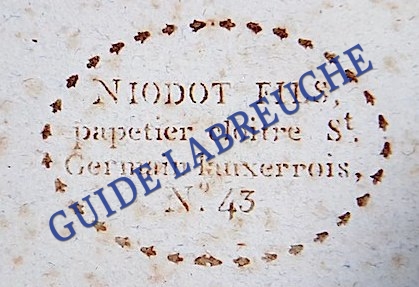 NIODOT FILS,
papetier cloître St.
Germain l'auxerrois,
No. 43
GUIDE LABREUCHE